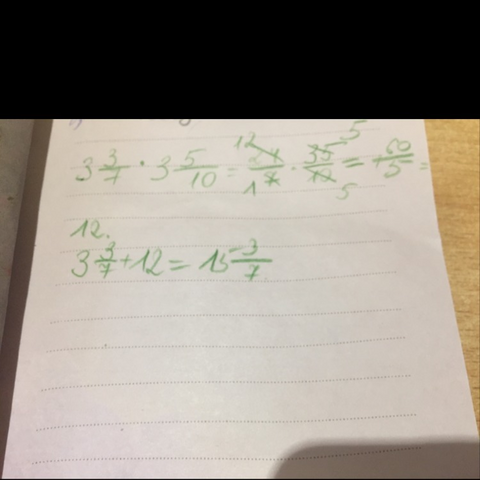 3 3/7 · 3 5/10 = 24/7 · 35/10 = 60/5 =
12.
3 3/7 + 12 = 15 3/7